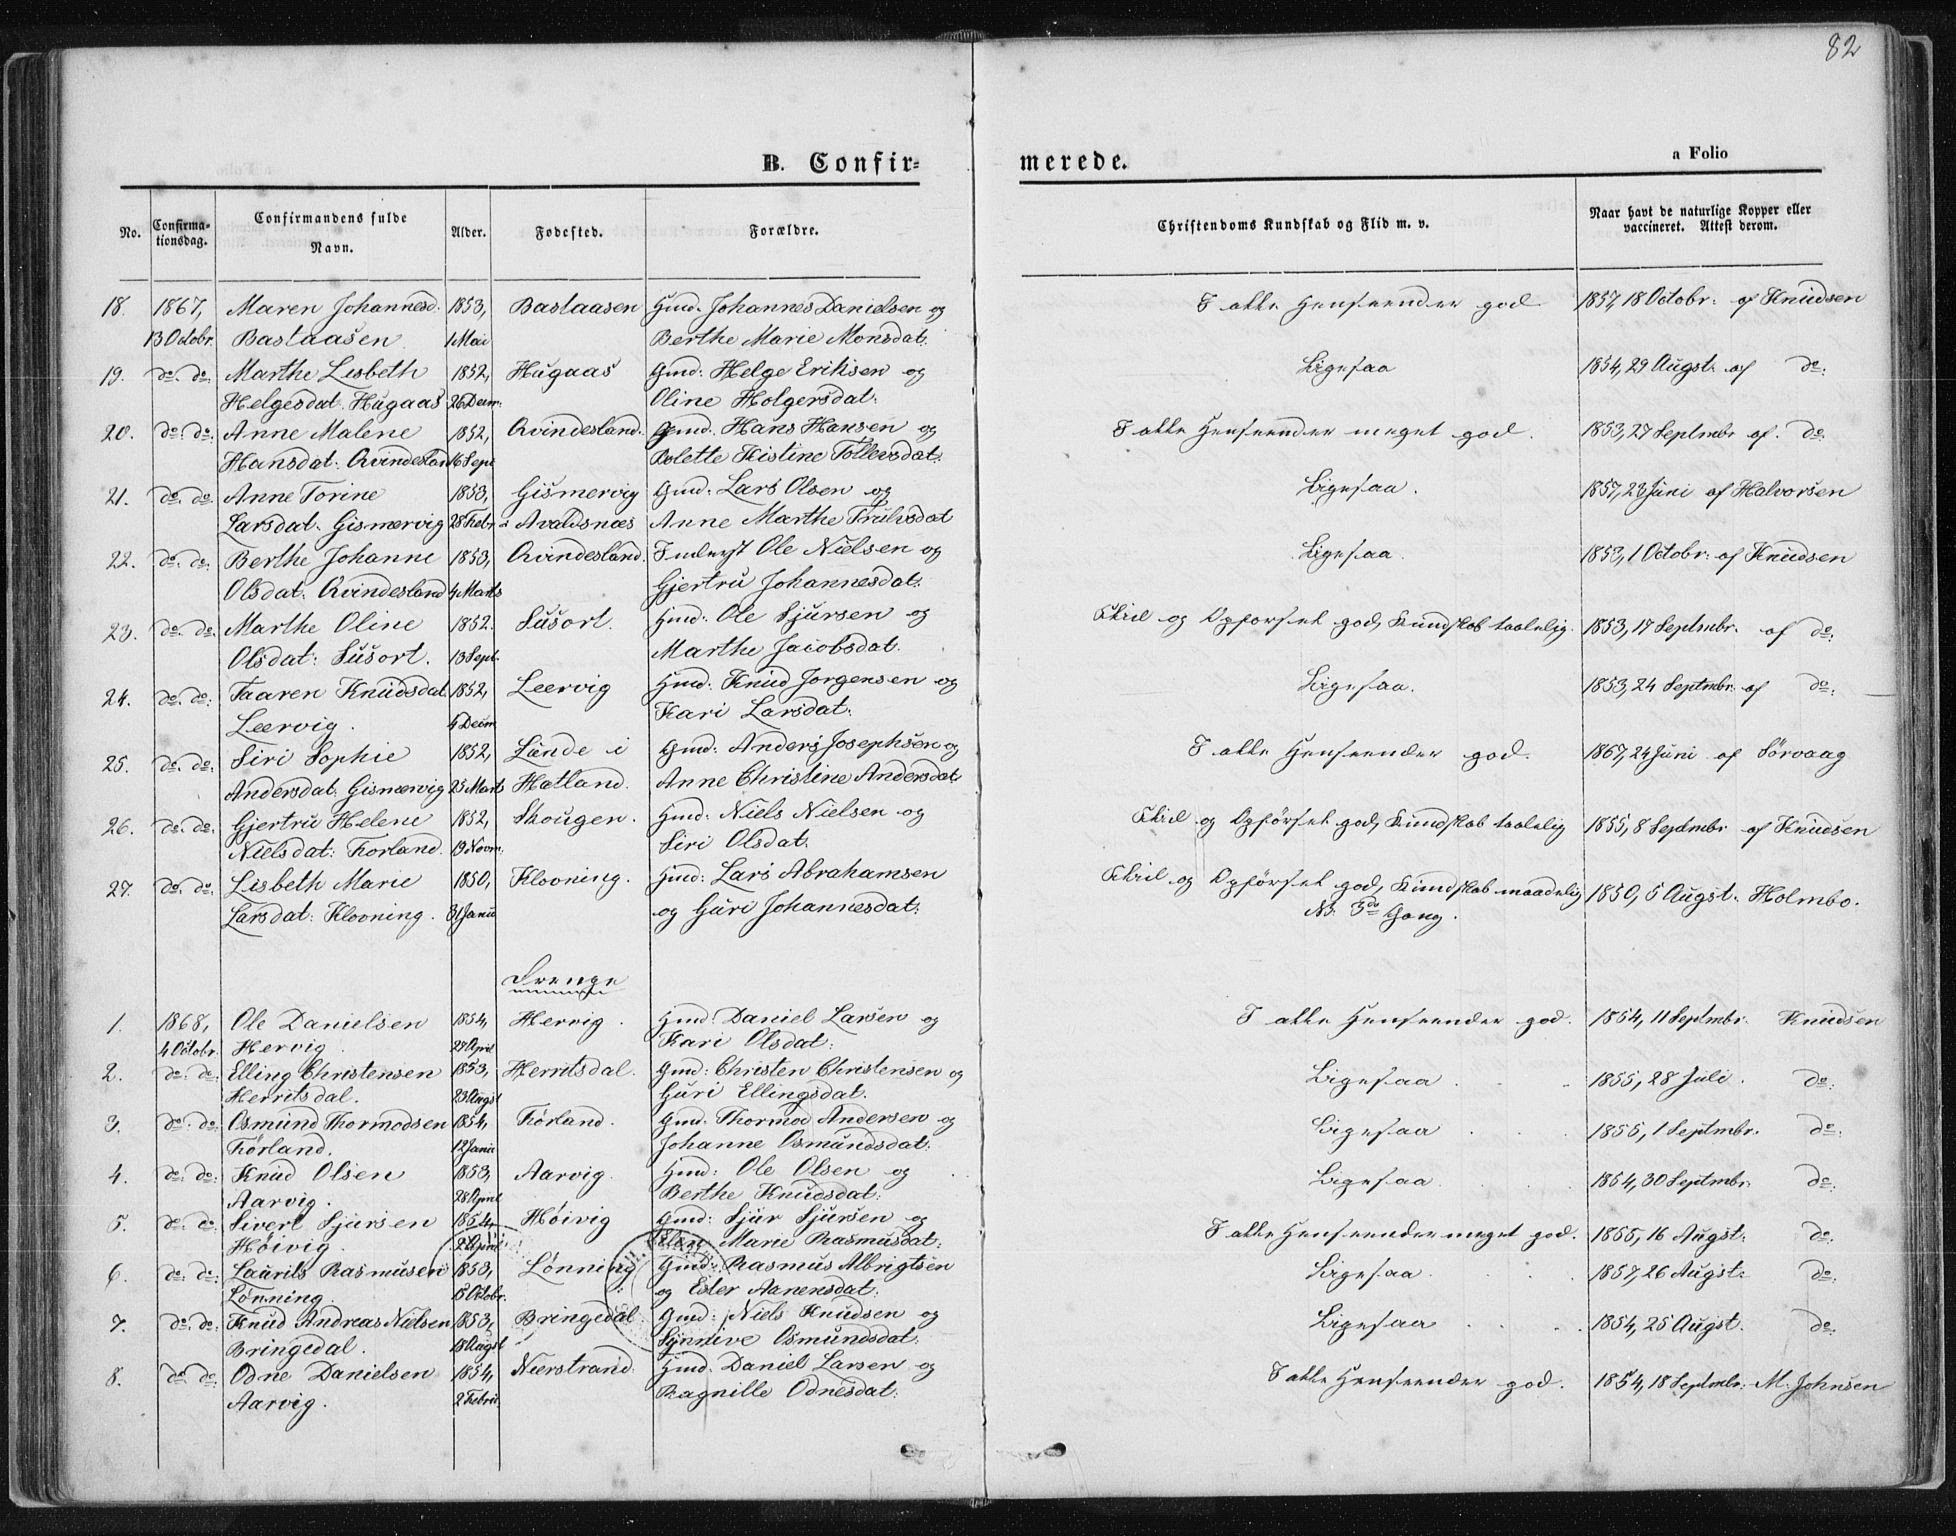 82
B. Confir=
merede.
a Folio
No. Confirma-tionsdag. Confirmandens fulde Navn. Alder. Fødested. Forældre. Christendoms Kundskab og Flid m. v. Naar havt de naturlige Kopper eller vaccineret. Attest derom.
18. 1867, Maren Johannesd. 1853, Bastaasen Hmd. Johannes Danielsen og I alle Henseender god 1857, 18 Octobr: af Knudsen
13 Octobr. Bastaasen 1 Mai Berthe Marie Monsdat:
19. do. do: Marthe Lisbeth 1852, Hugaas Gmd: Helge Eriksen og Ligesaa 1854, 29 Augst. af do:
Helgesdat. Hugaas 26 Decm: Oline Holgersdat:
20. do: do: Anne Malene 1852, Qvindesland. Gmd. Hans Hansen og I alle Henseender meget god. 1853, 27 Septmbr af. do:
Hansdat: Qvindesland 16 Sept Bolette Kistine Tollevsdat:
21. do: do: Anne Torine 1853, Gismervig Gmd: Lars Olsen og Ligesaa. 1857, 23 Juni af Halvorsen
Larsdat. Gismervig 28 Febr. i Avaldsnæs Anne Marthe Trulsdat
22. do: do: Berthe Johanne 1853, Qvindesland. Inderst Ole Nielsen og Ligesaa. 1853, 1 Octobr: af Knudsen
Olsdat: Qvindesland 4 Marts Gjertru Johannesdat:
23. do: do: Marthe Oline 1852. Susort. Hmd: Ole Sjursen og Flid og Opførsel god, Kundskab taalelig. 1853, 17 Septmbr. af do:
Olsdat: Susort. 13 Sept. Marthe Jacobsdat.
24. do: do: Taaren Knudsdat 1852, Leervig Hmd: Knud Jørgensen og Ligesaa. 1853, 24 Septmbr. af do:
Leervig. 4 Decm Kari Larsdat:
25. do: do: Siri Sophie 1852, Sunde i Gmd: Anders Josephsen og I alle Henseender god. 1867, 24 Juni af Sörvaag
Andersdat: Gismervig 25 Marts Hatland. Anne Christine Andersdat
26. do: do: Gjertru Helene 1852, Skougen. Hmd: Niels Nielsen og Flid og Opførsel god, Kundskab taalelig 1855, 8 Septmbr af Knudsen
Nielsdat: Forland. 19 Novm. Siri Olsdat.
27. do: do: Lisbeth Marie 1850, Klovning. Hmd: Lars Abrahamsen Flid og Opførsel god, Kundskab maadelig 1850, 5 Augst. Holmbo.
Larsdat: Klovning. 31 Janu og Guri Johannesdat: NB. 3de Gang.
Drenge
1. 1868, Ole Danielsen 1854, Hervig. Hmd: Daniel Larsen og I alle Henseender god. 1854, 11 Septmbr. Knudsen
4 Octobr. Hervig. 27 April Kari Olsdat:
2. do: do: Elling Christensen 1853, Herritsdal. Gmd: Christen Christensen og Ligesaa 1855, 28 Juli. do:
Herritsdal. 23 Augst Guri Ellingsdat.
3. do: do: Osmund Thormodsen 1854, Förland. Gmd: Thormod Andersen og Ligesaa 1855, 1 Septmbr. do:
Förland. 12 Janu Johanne Osmundsdat:
4. do: do: Knud Olsen 1853, Aarvig. Hmd: Ole Olsen og Ligesaa 1854, 30 Septmbr. do:
Aarvig. 28 April Berthe Knudsdat:
5. do: do: Sivert Sjursen 1854, Höivig Gmd: Sjur Sjursen og I alle Henseender meget god. 1855, 16 Augst: do:
Höivig. 2 April Elen Marie Rasmusdat:
6. do: do: Laurits Rasmusen 1853, Lønning Gmd: Rasmus Albrigtsen Ligesaa. 1857, 26 Augst: do:
Lønning. 15 Octobr. og Ester Aanensdat:
7. do: do: Knud Andreas Nielsen 1853, Bringedal Gmd: Niels Knudsen og Ligesaa 1854, 25 Augst. do:
Bringedal. 18 Augst Synnive Osmundsdat:
8. do: do: Odne Danielsen 1854, Nærstrand. Hmd: Daniel Larsen og I alle Henseender god. 1854, 18 Septmbr: M. Johnsen
Aarvig. 2 Febru. Ragnille Odnesdat: